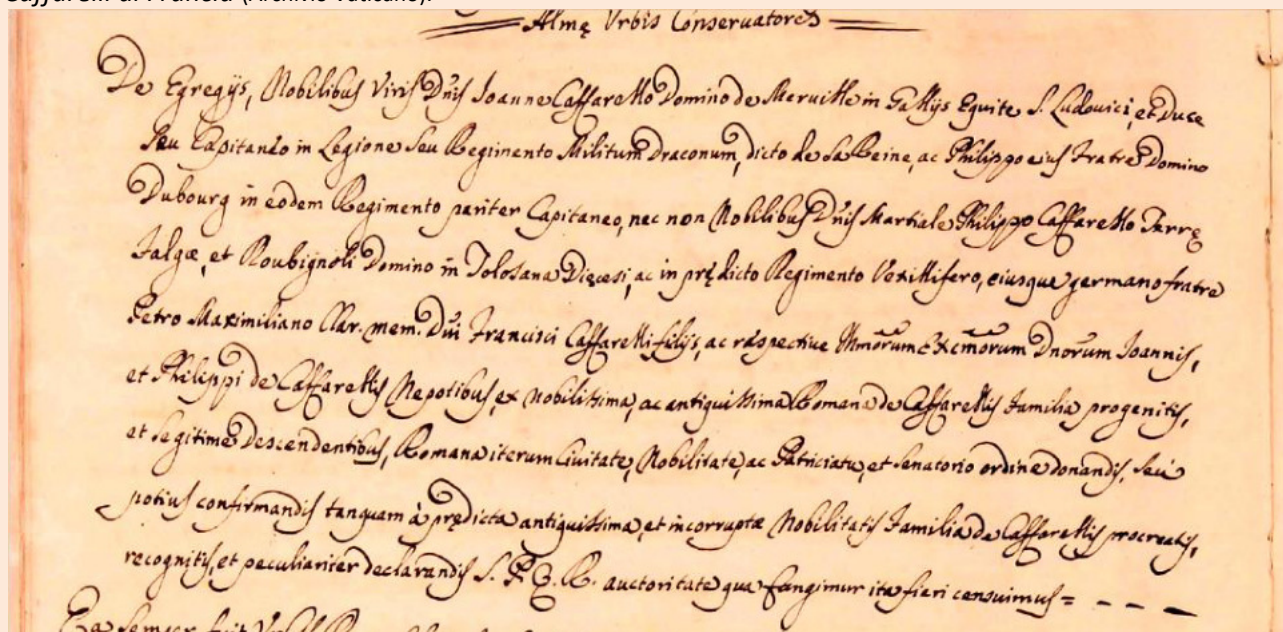 Caffarelli di Francia (Archivio Vaticano).
Almę Vrbis Conseruatores
De Egregijs, Nobilibus Viris Dñis Ioanne Caffarello Domino de Merville in Gallijs Equite S. Ludovici, et Duce
seu Capitaneo in Legione seu Regimento Militum Draconum, dicto de La Reine, ac Philippo eius Fratre Domino
Dubourg in eodem Regimento pariter Capitaneo, nec non Nobilibus Dñis Martiale Philippo Caffarello Turrę
Ialgæ, et Roubignoli Domino in Tolosana Dięcesi, ac in prędicto Regimento Vexillifero, eiusque germano fratre
Petro Maximiliano Clar. mem. Dñi Francisci Caffarelli filijs, ac respective Illmõrum Excmõrum Dnõrum Ioannis,
et Philippi de Caffarellis Nepotibus, ex nobilissima, ac antiquissima Romana de Caffarellis Familia progenitis,
et legitime Descendentibus, Romana iterum Civitate, Nobilitate, ac Patriciatu, et Senatorio ordine donandis, seu
potius confirmandis tanquam à prędicta antiquissima, et incorruptæ Nobilitatis Familia de Caffarellis procreatis,
recognitis, et peculiariter declarandis S. P. Q. R. auctoritate qua fungimur ita fieri censuimus = - - - -
Ea semper fuit